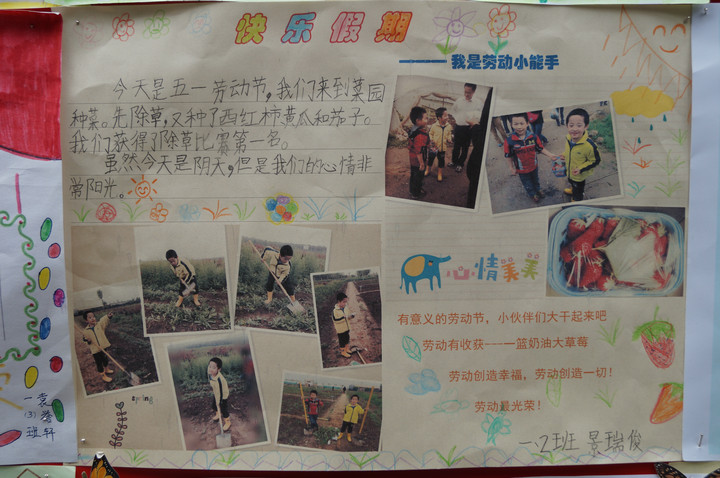 快乐假期
———我是劳动小能手
今天是五一劳动节，我们来到菜园
种菜。先除草，又种了西红柿黄瓜和茄子。
我们获得了除草比赛第一名。
虽然今天是阴天，但是我们的心情非
常阳光。
心情美美
有意义的劳动节，小伙伴们大干起来吧
劳动有收获----一篮奶油大草莓
劳动创造幸福，劳动创造一切！
劳动最光荣！
spring
一.2班 景瑞俊
一
(3)
班